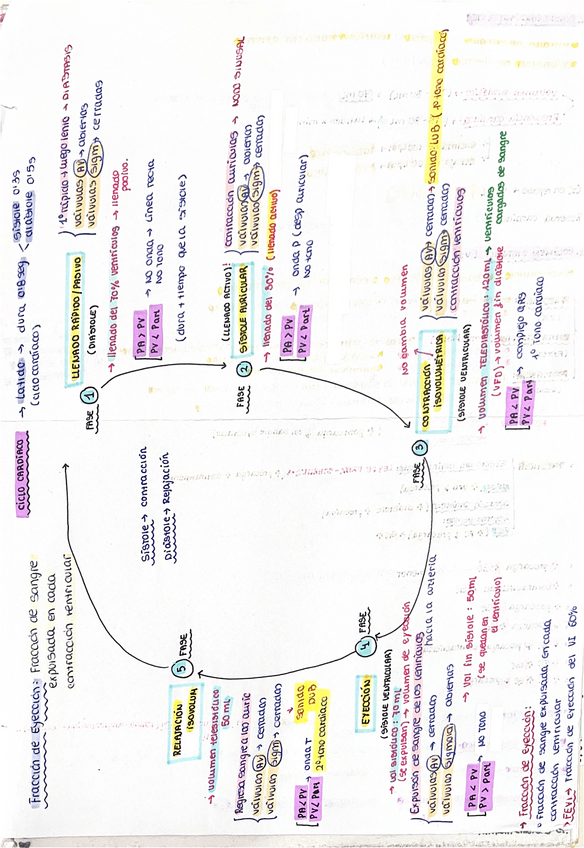 CICLO CARDÍACO → Latido → dura 0'8 seg < Sístole 0'3s
diástole 0'5s
(ciclo cardíaco)
Fracción de Eyección: Fracción de sangre
expulsada en cada
contracción ventricular
Sístole → contracción
Diástole → Relajación
FASE 1
LLENADO RÁPIDO/PASIVO
(DIÁSTOLE)
1º rápido → luego lento → DIÁSTASIS
válvulas AV → abiertas
válvulas Sigm → cerradas
→ llenado del 70% ventrículos → llenado
pasivo.
PA > PV
PV < Part
→ No onda → línea recta
No tono
(dura + tiempo que la sístole)
FASE 2
(LLENADO ACTIVO)
SÍSTOLE AURICULAR
contracción aurículas → nodo sinusal
válvulas AV → abiertas
válvulas Sigm → cerradas
→ llenado del 30% (llenado activo)
PA > PV
PV < Part
→ onda P (desp auricular)
No tono
FASE 3
No cambia volumen
CONTRACCIÓN
ISOVOLUMÉTRICA
(SÍSTOLE VENTRICULAR)
válvulas AV → cerradas → sonido LUB (1º tono cardíaco)
válvulas Sigm → cerradas
contracción ventrículos
→ volumen TELEDIASTÓLICO: 120 ml → ventrículos
cargados de sangre
(VFD) → volumen fin diástole
PA < PV
PV < Part
→ complejo QRS
1º tono cardíaco
FASE 4
EYECCIÓN
(SÍSTOLE VENTRICULAR)
→ vol sistólico: 70 ml
(se expulsan) → volumen de eyección
Expulsión de sangre de los ventrículos
hacia la arteria
válvulas AV → cerradas
válvulas Sigmoi → abiertas
PA < PV
PV > Part
→ NO TONO
→ vol fin sístole: 50 ml
(se quedan en
el ventrículo)
→ Fracción de eyección:
Fracción de sangre expulsada en cada
contracción ventricular
→ FEVI → Fracción de eyección del VI 60%
FASE 5
RELAJACIÓN
ISOVOLUM
→ volumen telesistólico
50 ml
Regresa sangre a las auríc
válvulas AV → cerradas
válvulas Sigm → cerradas
PA < PV
PV < Part
→ onda T + sonido
DUB
2º tono cardíaco